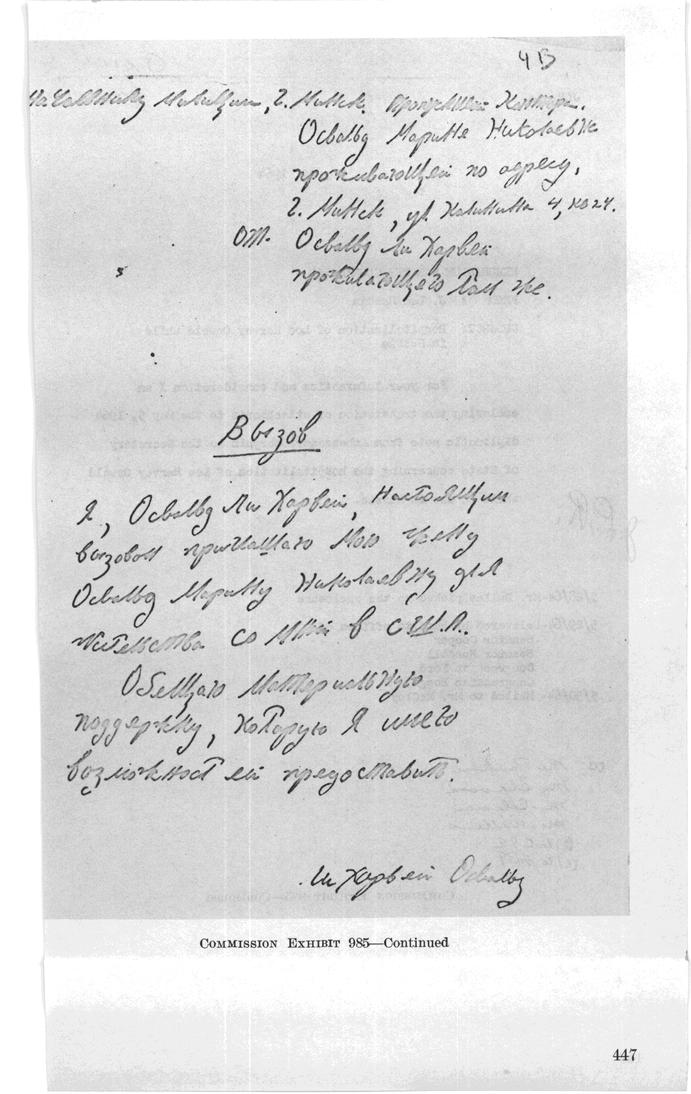 4 В
Начальнику Милиции, г. Минск.
Освальд Марине Николаевне
проживающей по адресу,
г. Минск, ул Калинина 4, кв 24.
от. Освальд Ли Харвей
проживающего там же.
Вызов
Я, Освальд Ли Харвей, настоящим
вызовом приглашаю мою жену
Освальд Марину Николаевну для
жительства со мной в С.Ш.А.
Обещаю материальную
поддержку, которую я имею
возможност ей предоставить.
Ли Харвей Освальд
COMMISSION EXHIBIT 985—Continued
447